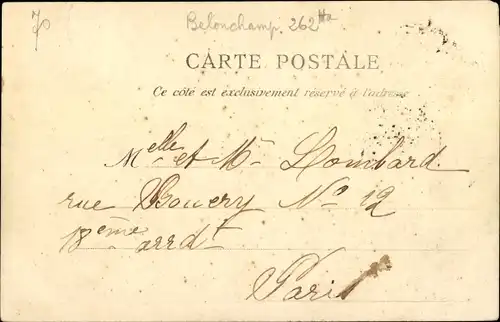 70
Belonchamp 262Hte
CARTE POSTALE
Ce côté est exclusivement réservé à l'adresse
Melle et Mr Lombard
rue No 12
18ème arrdt
Paris